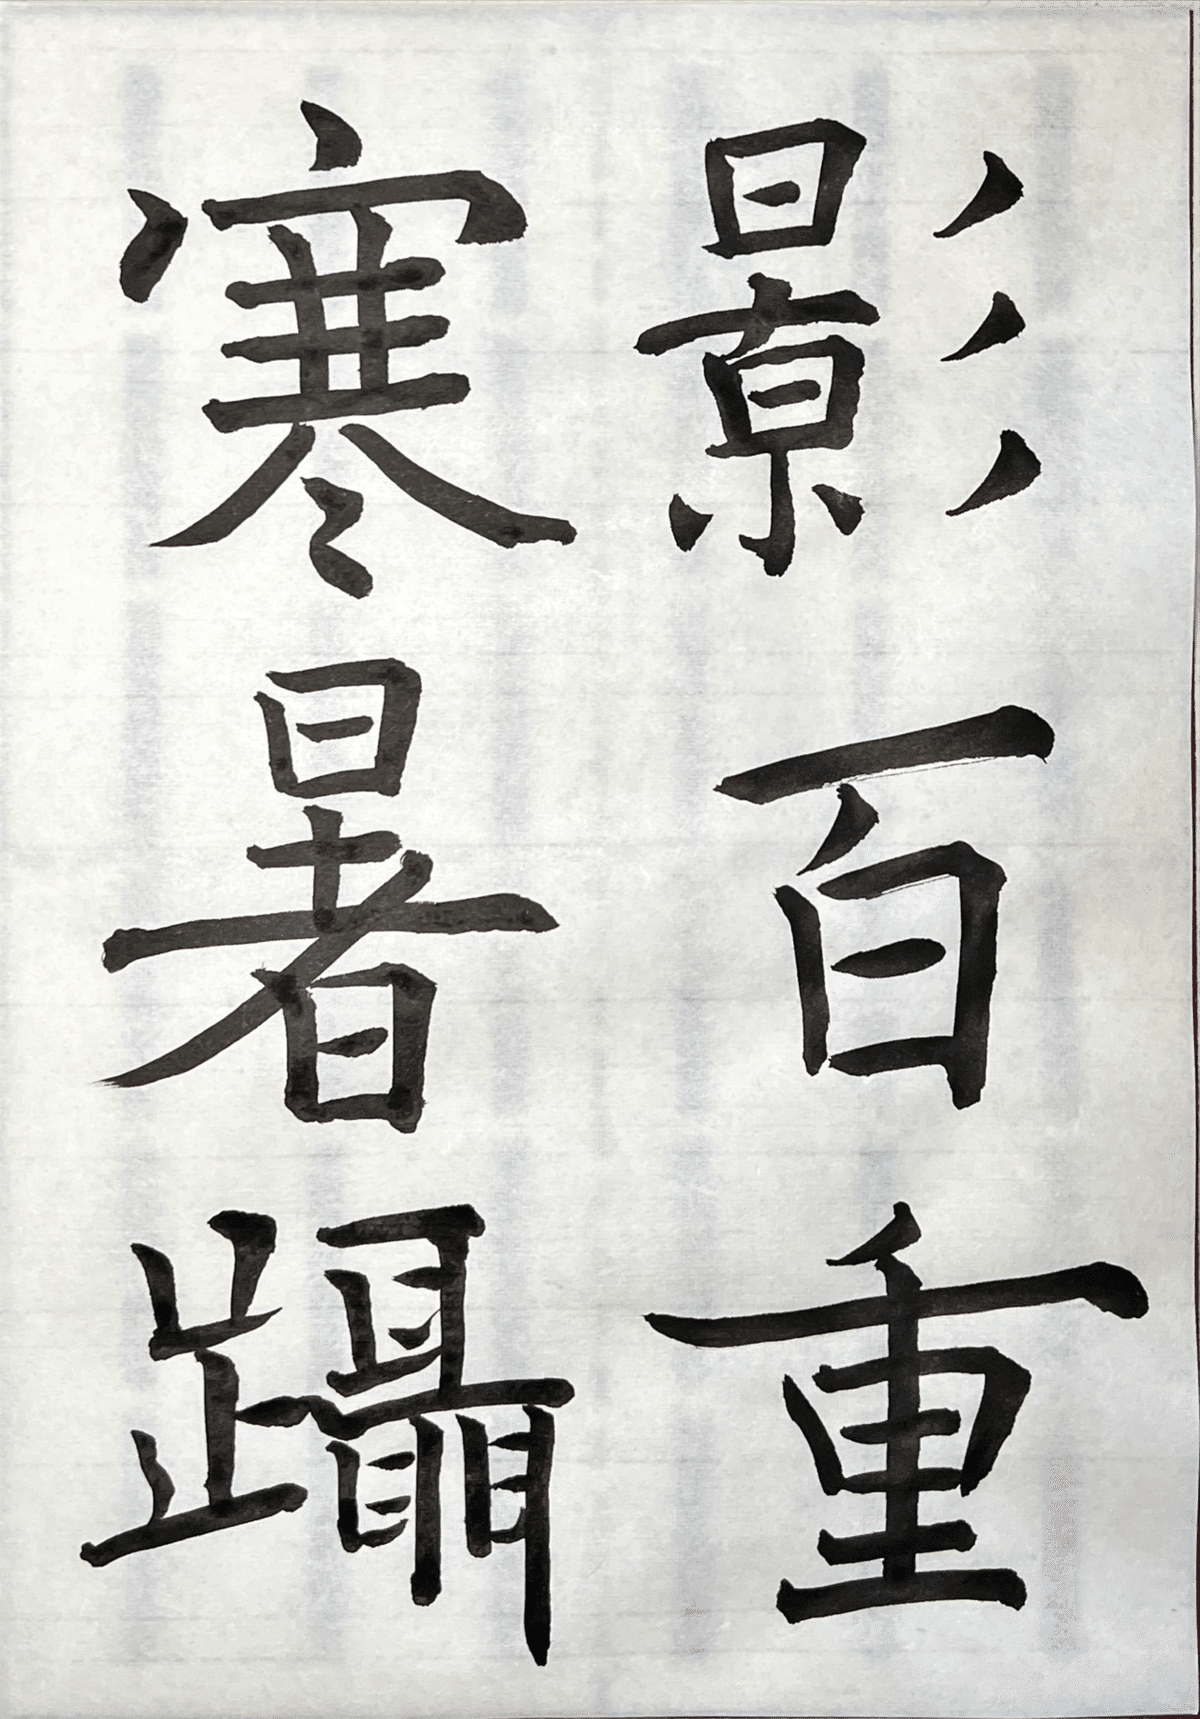 影百重
寒暑躡